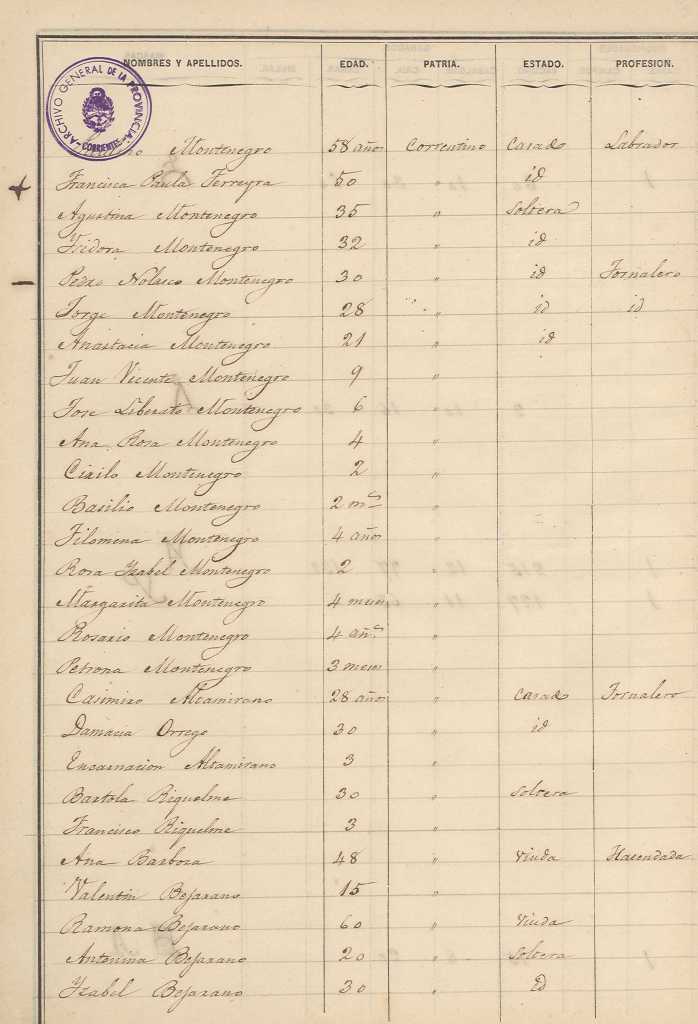 NOMBRES Y APELLIDOS. EDAD. PATRIA. ESTADO. PROFESION.
ARCHIVO GENERAL DE LA PROVINCIA - CORRIENTES -
Montenegro 58 años Correntino Casado Labrador
Francisca Paula Ferreyra 50 " id
Agustina Montenegro 35 " Soltera
Isidora Montenegro 32 " id
Pedro Nolasco Montenegro 30 " id Jornalero
Jorge Montenegro 28 " id id
Anastacia Montenegro 21 " id
Juan Vicente Montenegro 9 "
Jose Liberato Montenegro 6 "
Ana Rosa Montenegro 4 "
Cirilo Montenegro 2 "
Basilio Montenegro 2 ms "
Filomena Montenegro 4 años "
Rosa Ysabel Montenegro 2 "
Margarita Montenegro 4 meses "
Rosario Montenegro 4 añs "
Petrona Montenegro 3 meses "
Casimiro Altamirano 28 años " Casado Jornalero
Damacia Orrego 30 " id
Encarnacion Altamirano 3 "
Bartola Riquelme 30 " Soltera
Francisco Riquelme 3 "
Ana Barboza 48 " Viuda Hacendada
Valentin Bejarano 15 "
Ramona Bejarano 60 " Viuda
Antonina Bejarano 20 " Soltera
Ysabel Bejarano 30 " id